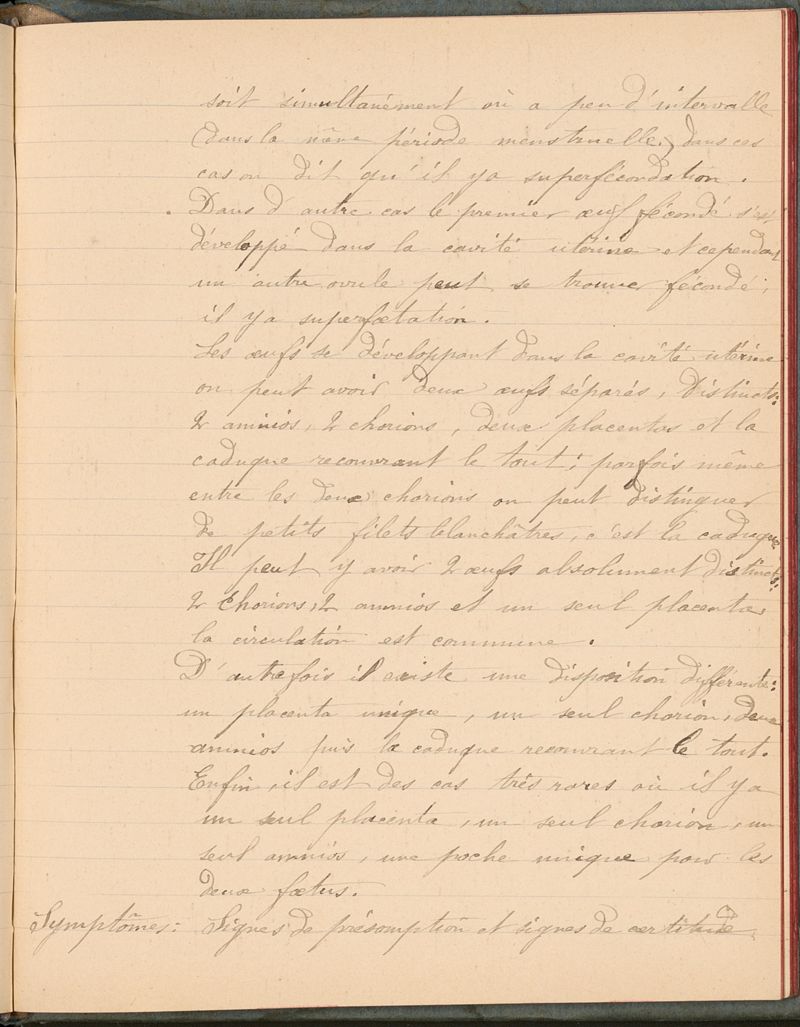 soit simultanément où a peu d'intervalle
(dans la même période menstruelle,) dans ces
cas on dit qu'il ya superfécondation.
Dans d'autre cas le premier œuf fécondé s'est
développé dans la cavité utérine et cependant
un autre ovule peut se trouver fécondé ;
il ya superfœtation.
Les œufs se développant dans la cavité utérine
on peut avoir deux œufs séparés, distincts:
2 amnios, 2 chorions, deux placentas et la
caduque recouvrant le tout ; parfois même
entre les deux chorions on peut distinguer
de petits filets blanchâtres, c'est la caduque
Il peut y avoir 2 œufs absolument distincts:
2 chorions, 2 amnios et un seul placenta
la circulation est commune.
D'autrefois il existe une disposition différente:
un placenta unique, un seul chorion, deux
amnios puis la caduque recouvrant le tout.
Enfin, il est des cas très rares où il ya
un seul placenta, un seul chorion, un
seul amnios, une poche unique pour les
deux fœtus.
Symptômes: Signes de présomption et signes de certitude.